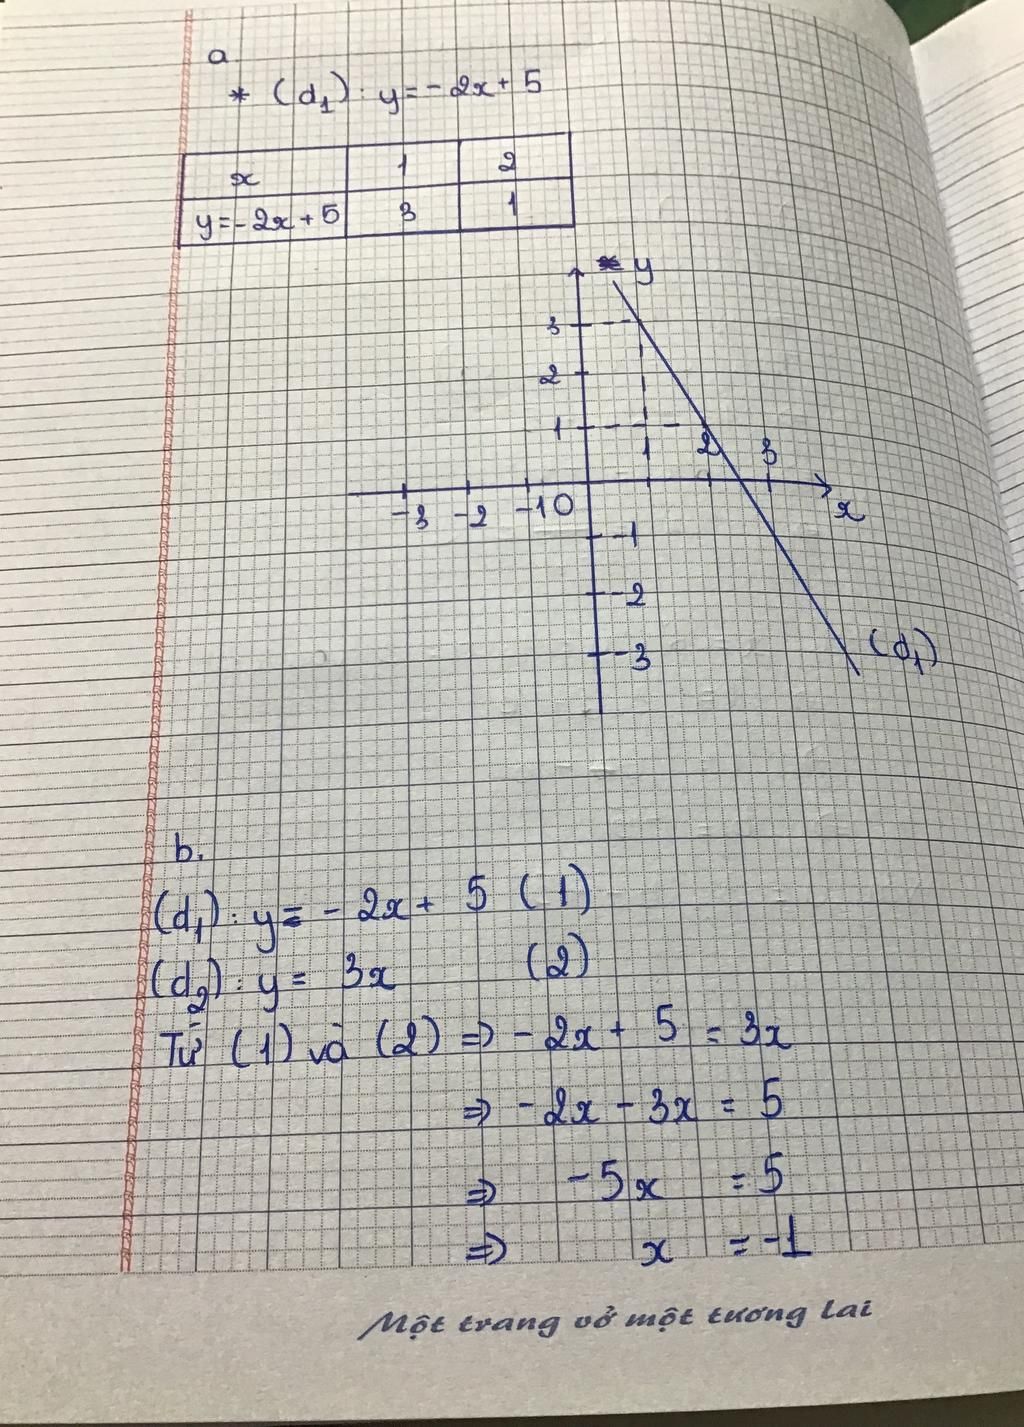 a
* (d₁): y = -2x + 5
x 1 2
y = -2x + 5 3 1
y
3
2
1
1 2 3
-3 -2 -1 O x
-1
-2
-3
(d₁)
b.
(d₁): y = -2x + 5 (1)
(d₂): y = 3x (2)
Từ (1) và (2) => -2x + 5 = 3x
=> -2x - 3x = 5
=> -5x = 5
=> x = -1
Một trang vở một tương lai